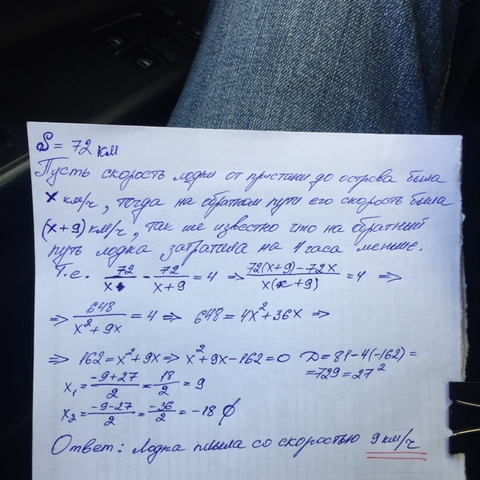 S = 72 км
Пусть скорость лодки от пристани до острова была
x км/ч, тогда на обратном пути его скорость была
(x+9) км/ч, так же известно что на обратный
путь лодка затратила на 4 часа меньше.
Т.е. 72/x - 72/(x+9) = 4 ⇒ (72(x+9)-72x)/(x(x+9)) = 4 ⇒
⇒ 648/(x²+9x) = 4 ⇒ 648 = 4x²+36x ⇒
⇒ 162 = x²+9x ⇒ x²+9x-162=0 D = 81-4(-162) =
= 729 = 27²
x₁ = (-9+27)/2 = 18/2 = 9
x₂ = (-9-27)/2 = -36/2 = -18 ∅
Ответ: Лодка плыла со скоростью 9 км/ч